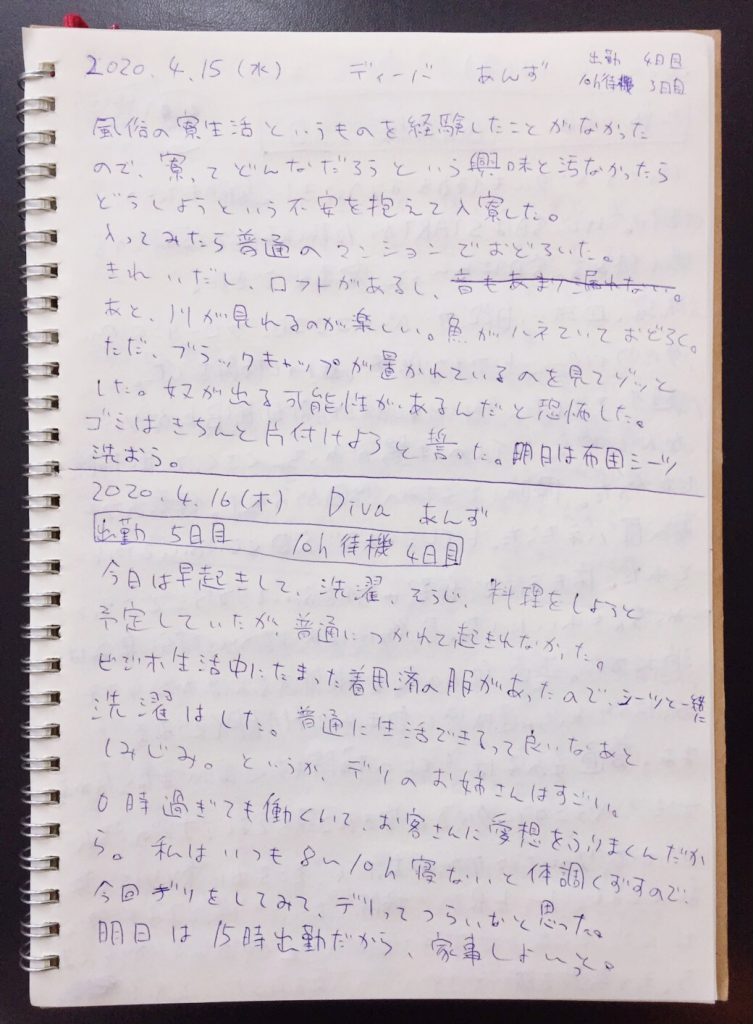 2020.4.15(水) ディーバ あんず 出勤 4日目
10h待機 3日目
風俗の寮生活というものを経験したことがなかった
ので、寮ってどんなだろうという興味と汚なかったら
どうしようという不安を抱えて入寮した。
入ってみたら普通のマンションでおどろいた。
きれいだし、ロフトがあるし、音もあまり漏れない。
あと、川が見れるのが楽しい。魚がハネていておどろく。
ただ、ブラックキャップが置かれているのを見てゾッと
した。奴が出る可能性があるんだと恐怖した。
ゴミはきちんと片付けようと誓った。明日は布団シーツ
洗おう。
2020.4.16(木) Diva あんず
出勤 5日目 10h待機 4日目
今日は早起きして、洗濯、そうじ、料理をしようと
予定していたが、普通につかれて起きれなかった。
ビジホ生活中にたまった着用済の服があったので、シーツと一緒に
洗濯はした。普通に生活できるって良いなあと
しみじみ。というか、デリのお姉さんはすごい。
0時過ぎても働くいて、お客さんに愛想をふりまくんだか
ら。私はいつも8〜10h寝ないと体調くずすので、
今回デリをしてみて、デリってつらいなと思った。
明日は15時出勤だから、家事しよいっと。